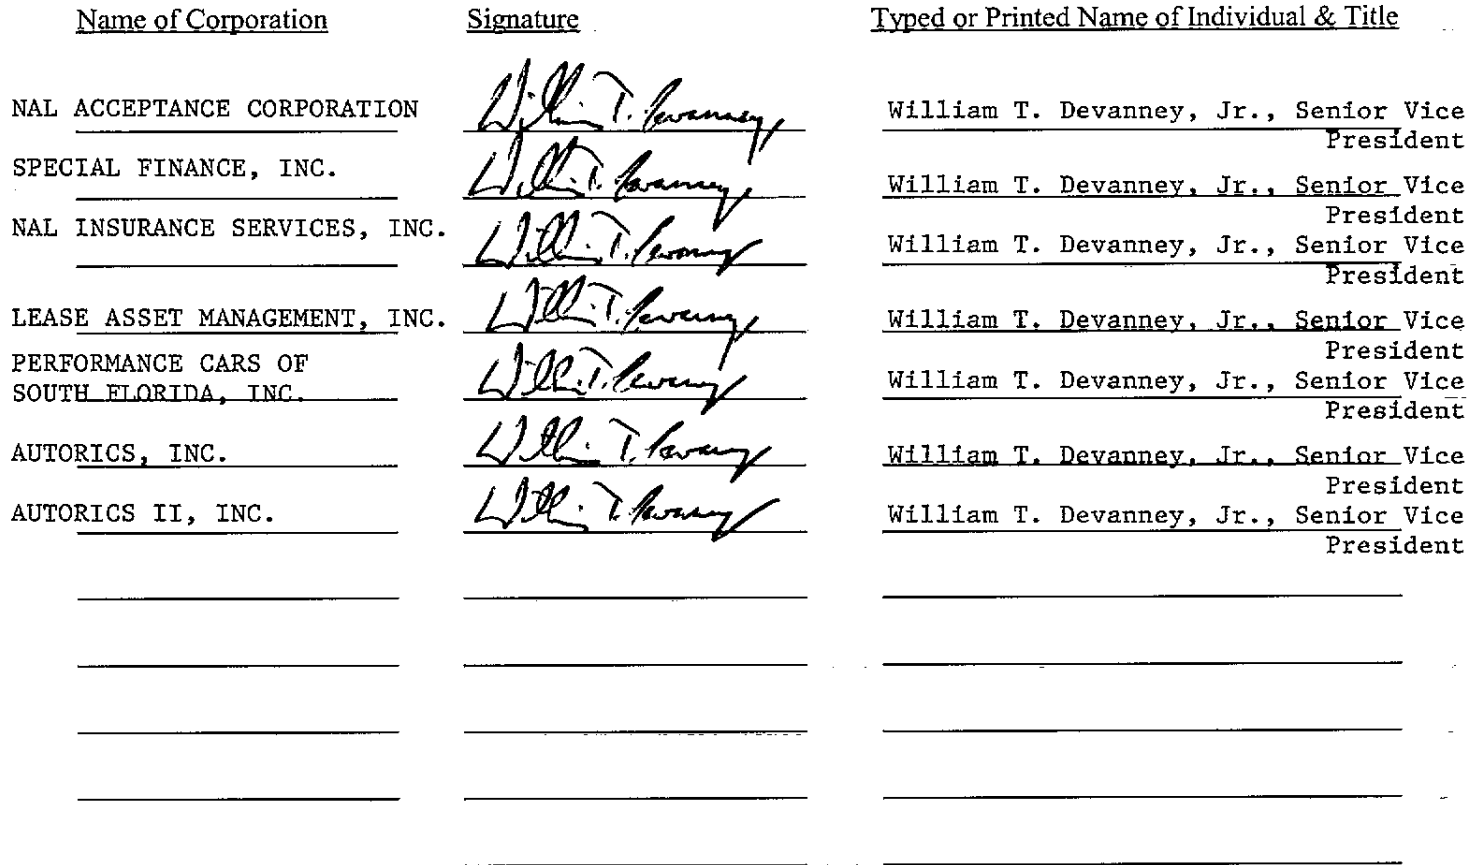 Name of Corporation Signature Typed or Printed Name of Individual & Title
NAL ACCEPTANCE CORPORATION William T. Devanney, William T. Devanney, Jr., Senior Vice
President
SPECIAL FINANCE, INC. William T. Devanney, William T. Devanney, Jr., Senior Vice
President
NAL INSURANCE SERVICES, INC. William T. Devanney William T. Devanney, Jr., Senior Vice
President
LEASE ASSET MANAGEMENT, INC. William T. Devanney, William T. Devanney, Jr., Senior Vice
President
PERFORMANCE CARS OF
SOUTH FLORIDA, INC. William T. Devanney William T. Devanney, Jr., Senior Vice
President
AUTORICS, INC. William T. Devanney William T. Devanney, Jr., Senior Vice
President
AUTORICS II, INC. William T. Devanney William T. Devanney, Jr., Senior Vice
President